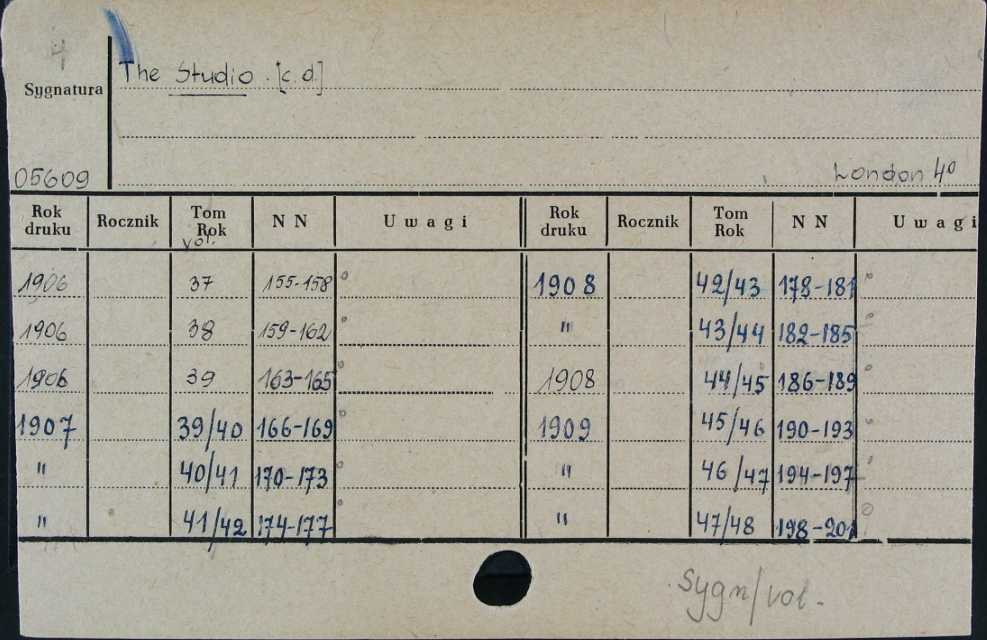 4
The Studio. [c.d.]
Sygnatura
05609 London 4º
Rok druku Rocznik Tom Rok vol. N N Uwagi Rok druku Rocznik Tom Rok N N Uwagi
1906 37 155-158 1908 42/43 178-181
1906 38 159-162 " 43/44 182-185
1906 39 163-165 1908 44/45 186-189
1907 39/40 166-169 1909 45/46 190-193
" 40/41 170-173 " 46/47 194-197
" 41/42 174-177 " 47/48 198-201
Sygn/vol.